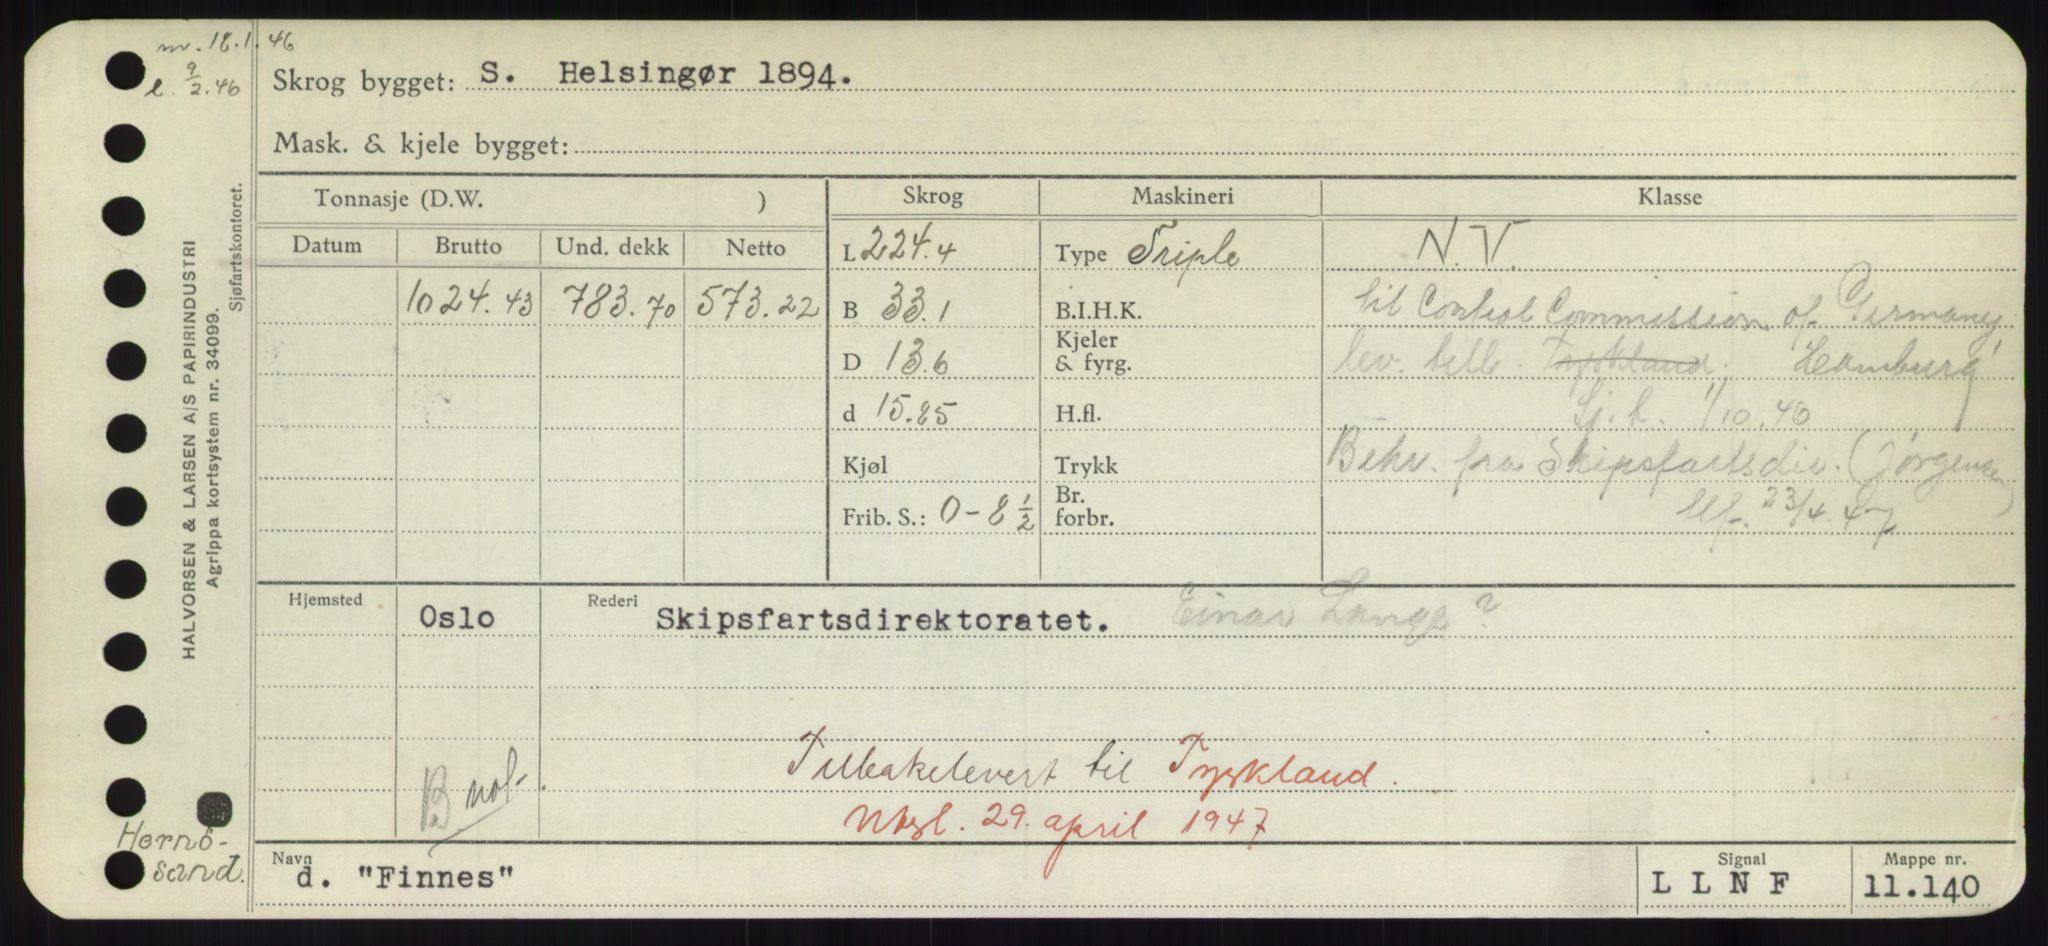 nv. 18.1.46
l. 9/2.46
Skrog bygget: S. Helsingør 1894.
Mask. & kjele bygget:
HALVORSEN & LARSEN A/S PAPIRINDUSTRI
Agrippa kortsystem nr. 34099.
Sjøfartskontoret.
Tonnasje (D.W. ) Skrog Maskineri Klasse
Datum Brutto Und. dekk Netto L 224.4 Type Triple N.V.
1024.43 783.70 573.22 B 33.1 B.I.H.K. til Control Commission of Germany,
D 13.6 Kjeler & fyrg. lev. till. Tyskland. Hamburg
d 15.25 H.fl. 1/10.46
Kjøl Trykk Bekr. fra Skipsfartsdir. (Jörgensen)
Frib. S.: 0-8 1/2 Br. forbr. tlf. 23/4.47
Hjemsted Oslo Rederi Skipsfartsdirektoratet. Einar Lange?
Tilbakelevert til Tyskland.
B not.
Nbgl. 29. april 1947
Hernö-
sand.
Navn d. "Finnes" Signal L L N F Mappe nr. 11.140